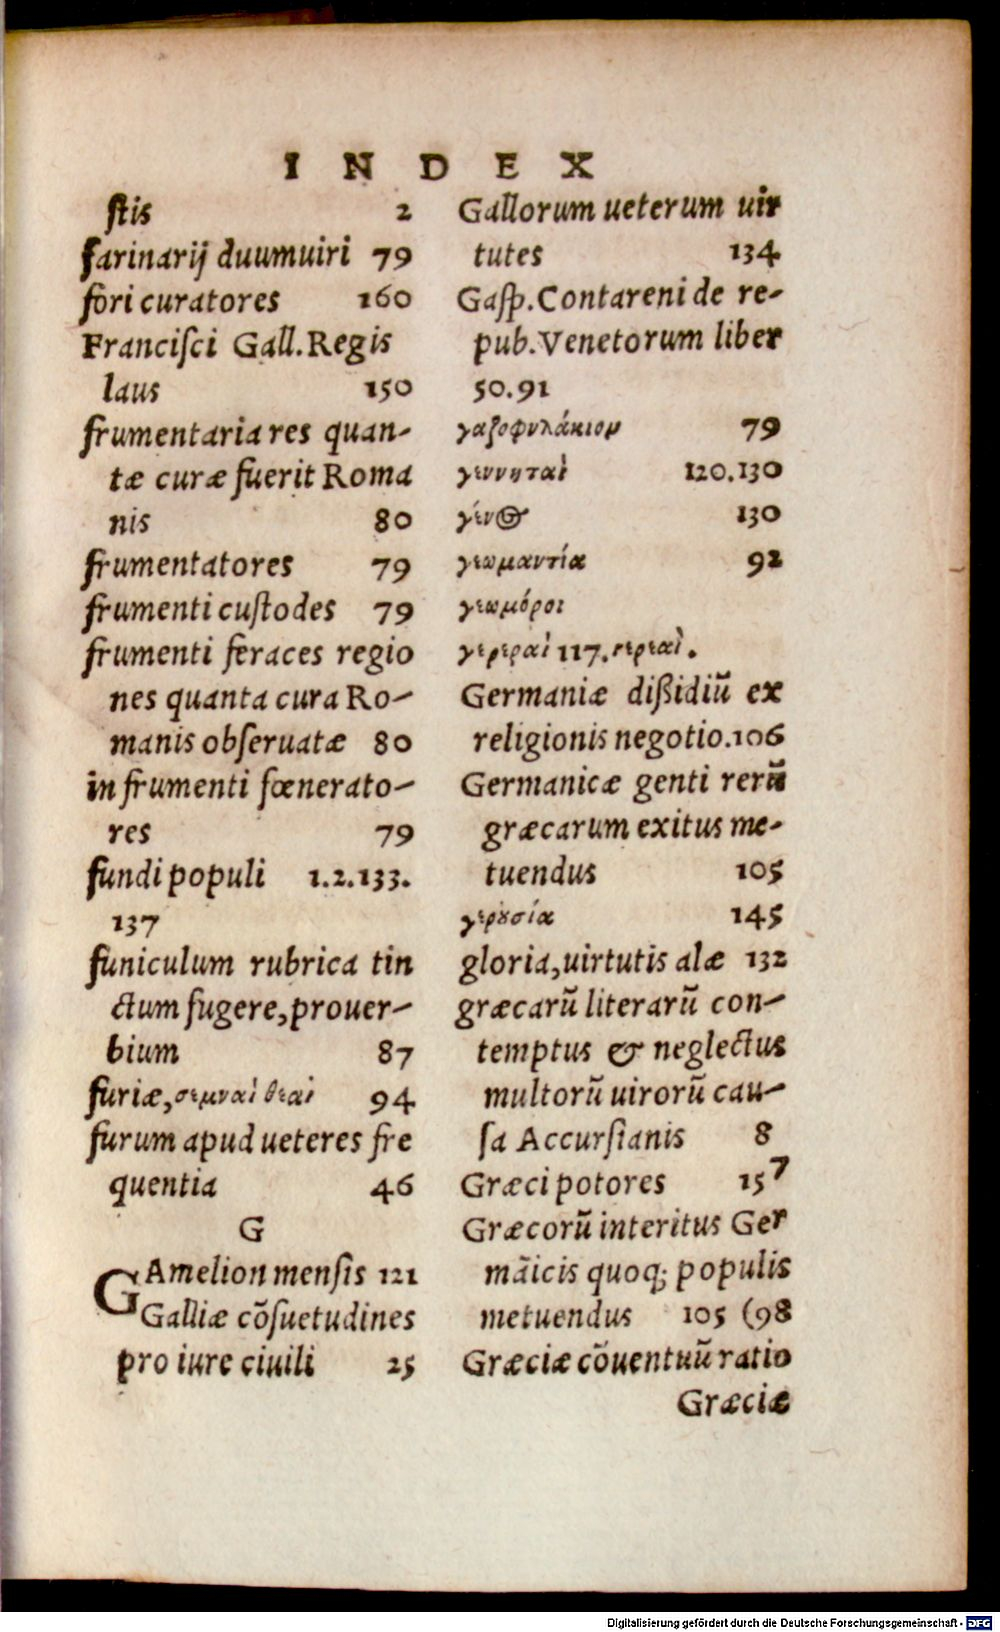 INDEX
ſtis 2
farinarij duumuiri 79
fori curatores 160
Franciſci Gall. Regis
laus 150
frumentaria res quan-
tæ curæ fuerit Roma
nis 80
frumentatores 79
frumenti cuſtodes 79
frumenti feraces regio
nes quanta cura Ro-
manis obſeruatæ 80
in frumenti fœnerato-
res 79
fundi populi 1.2.133.
137
funiculum rubrica tin
ctum fugere, prouer-
bium 87
furiæ, σεμναὶ θεαὶ 94
furum apud ueteres fre
quentia 46
G
GAmelion menſis 121
Galliæ cōſuetudines
pro iure ciuili 25
Gallorum ueterum uir
tutes 134
Gaſp. Contareni de re-
pub. Venetorum liber
50.91
γαζοφυλάκιον 79
γεννηταὶ 120.130
γένος 130
γεωμαντία 92
γεωμόροι
γεραραὶ 117.
Germaniæ dißidiū ex
religionis negotio. 106
Germanicæ genti rerū
græcarum exitus me-
tuendus 105
γερουσία 145
gloria, uirtutis alæ 132
græcarū literarū con-
temptus & neglectus
multorū uirorū cau-
ſa Accurſianis 8
Græci potores 157
Græcorū interitus Ger
māicis quoq; populis
metuendus 105 (98
Græciæ cōuentuū ratio
Græciæ
Digitalisierung gefördert durch die Deutsche Forschungsgemeinschaft - DFG